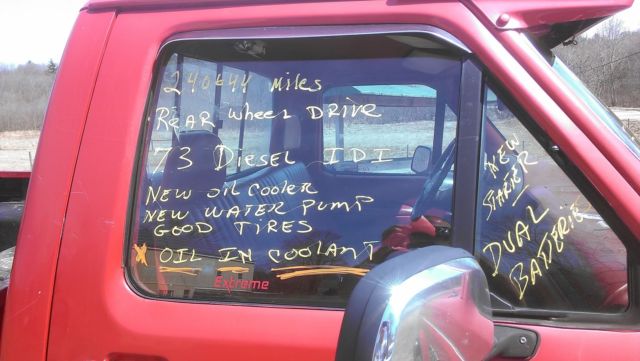 240644 Miles
REAR Wheel DRIVE
73 Diesel IDI
New oil cooler
NEW WATER PUMP
GOOD TIRES
* OIL IN COOLANT
Extreme
NEW
STARTER
DUAL
BATTERIE